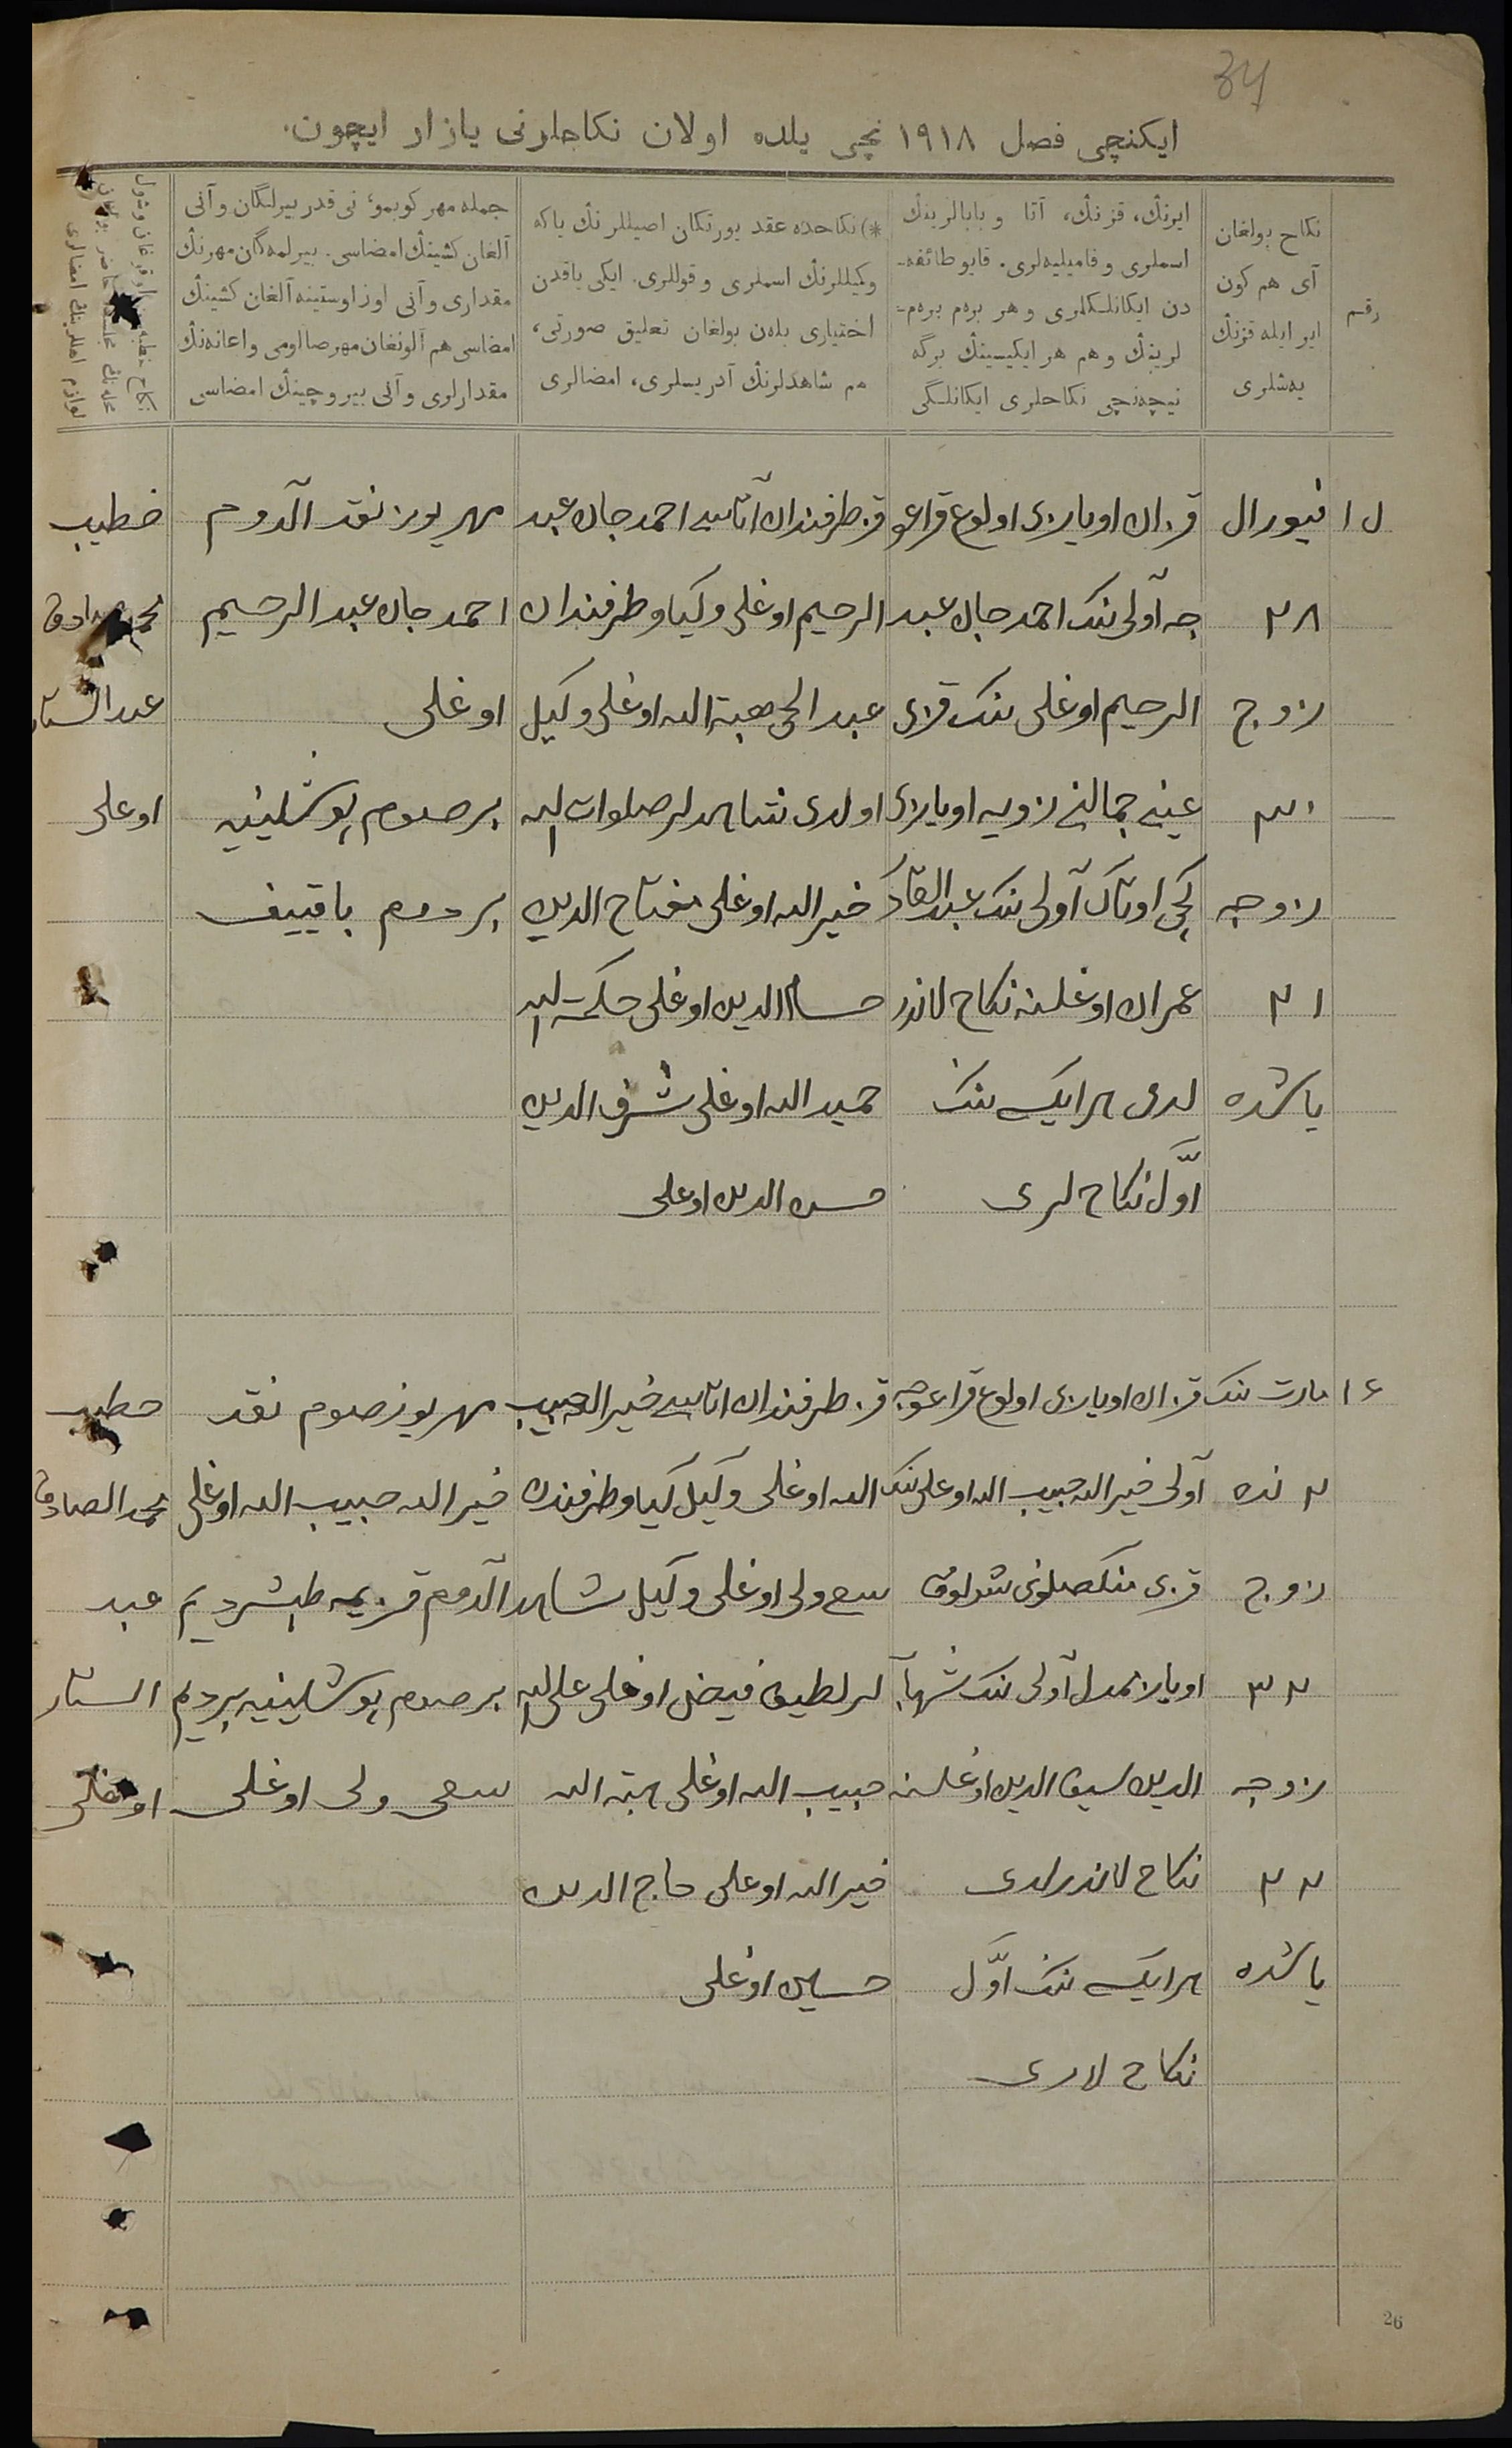 34
ایکنچی فصل ۱۹۱۸ نچی یلده اولان نکاحلرنی یازار ایچون.
رقم
نکاح بولغان
آی هم کون
ایر ایله قزنڭ
یه‌شلری
ایرنڭ، قزنڭ، آتا و بابالرینڭ
اسملری و فامیلیه‌لری. قایو طائفه‌-
دن ایکانلکلری و هر برم بره‌م-
لرینڭ و هم هر ایکیسینڭ برگه
نیچه‌نچی نکاحلری ایکانلگی
*) نکاحده عقد یورتکان اصیللرنڭ یاکه
وکیللرنڭ اسملری و قوللری. ایکی یاقدن
اختیاری بله‌ن بولغان تعلیق صورتی،
هم شاهدلرنڭ آدریسلری، امضالری
جمله مهر کوبمو، نی قدر بیرلگان و آنی
آلغان کشینڭ امضاسی. بیرلمه‌گان مهرنڭ
مقداری و آنی اوز اوستینه آلغان کشینڭ
امضاسی هم آلونغان مهر صاالومی و اعانه‌نڭ
مقدارلری و آنی بیروچینڭ امضاسی
فیورال
۲۸
زوج
۳۰
زوجه
۲۱
یاشده
قزان اویازی اولوغ قراعو
جه آولی ننک احمد جان عبد
الرحیم اوغلی ننک قزی
عینی جمالنی زویه اویازی
کچی اوتاک آولی ننک عبدالقادر
عمران اوغلینه نکاح لاندر
لدی هر ایکسی ننک
اوّل نکاح لری
قز طرفندان آتاسی احمد جان عبد
الرحیم اوغلی وکیل کیاو طرفندان
عبد الحی هبة الله اوغلی وکیل
اولدی شاهدلر صلوات الله
خیر الله اوغلی مفتاح الدین
حسام الدین اوغلی حکمة الله
حمید الله اوغلی شرف الدین
حسن الدین اوغلی
مهر یوز نقد آلدوم
احمد جان عبد الرحیم
اوغلی
بر صوم پوشلینیه
بردوم باقییف
خطیب
محمد صادق
عبد الستار
اوغلی
مارت ننک
۲ نده
زوج
۲۳
زوجه
۲۲
یاشده
قزان اویازی اولوغ قراعوجه
آولی خیر الله حبیب الله اوغلی ننک
قزی
اویاز آولی ننک شهاب
الدین سیف الدین اوغلینه
نکاح لاندرلدی
هر ایکسی ننک اوّل
نکاح لاری
قز طرفندان اتاسی خیر الله حبیب
الله اوغلی وکیل کیاو طرفندن
ولی اوغلی وکیل شاهد
لر لطیف فیض اوغلی علی الله
حبیب الله اوغلی هبة الله
خیر الله اوغلی حاج الدین
حسین اوغلی
مهر یوز صوم نقد
خیر الله حبیب الله اوغلی
آلدوم قزیمه طبشردیم
بر صوم پوشلینیه بردیم
ولی اوغلی
خطیب
محمد الصادق
عبد
الستار
اوغلی
26